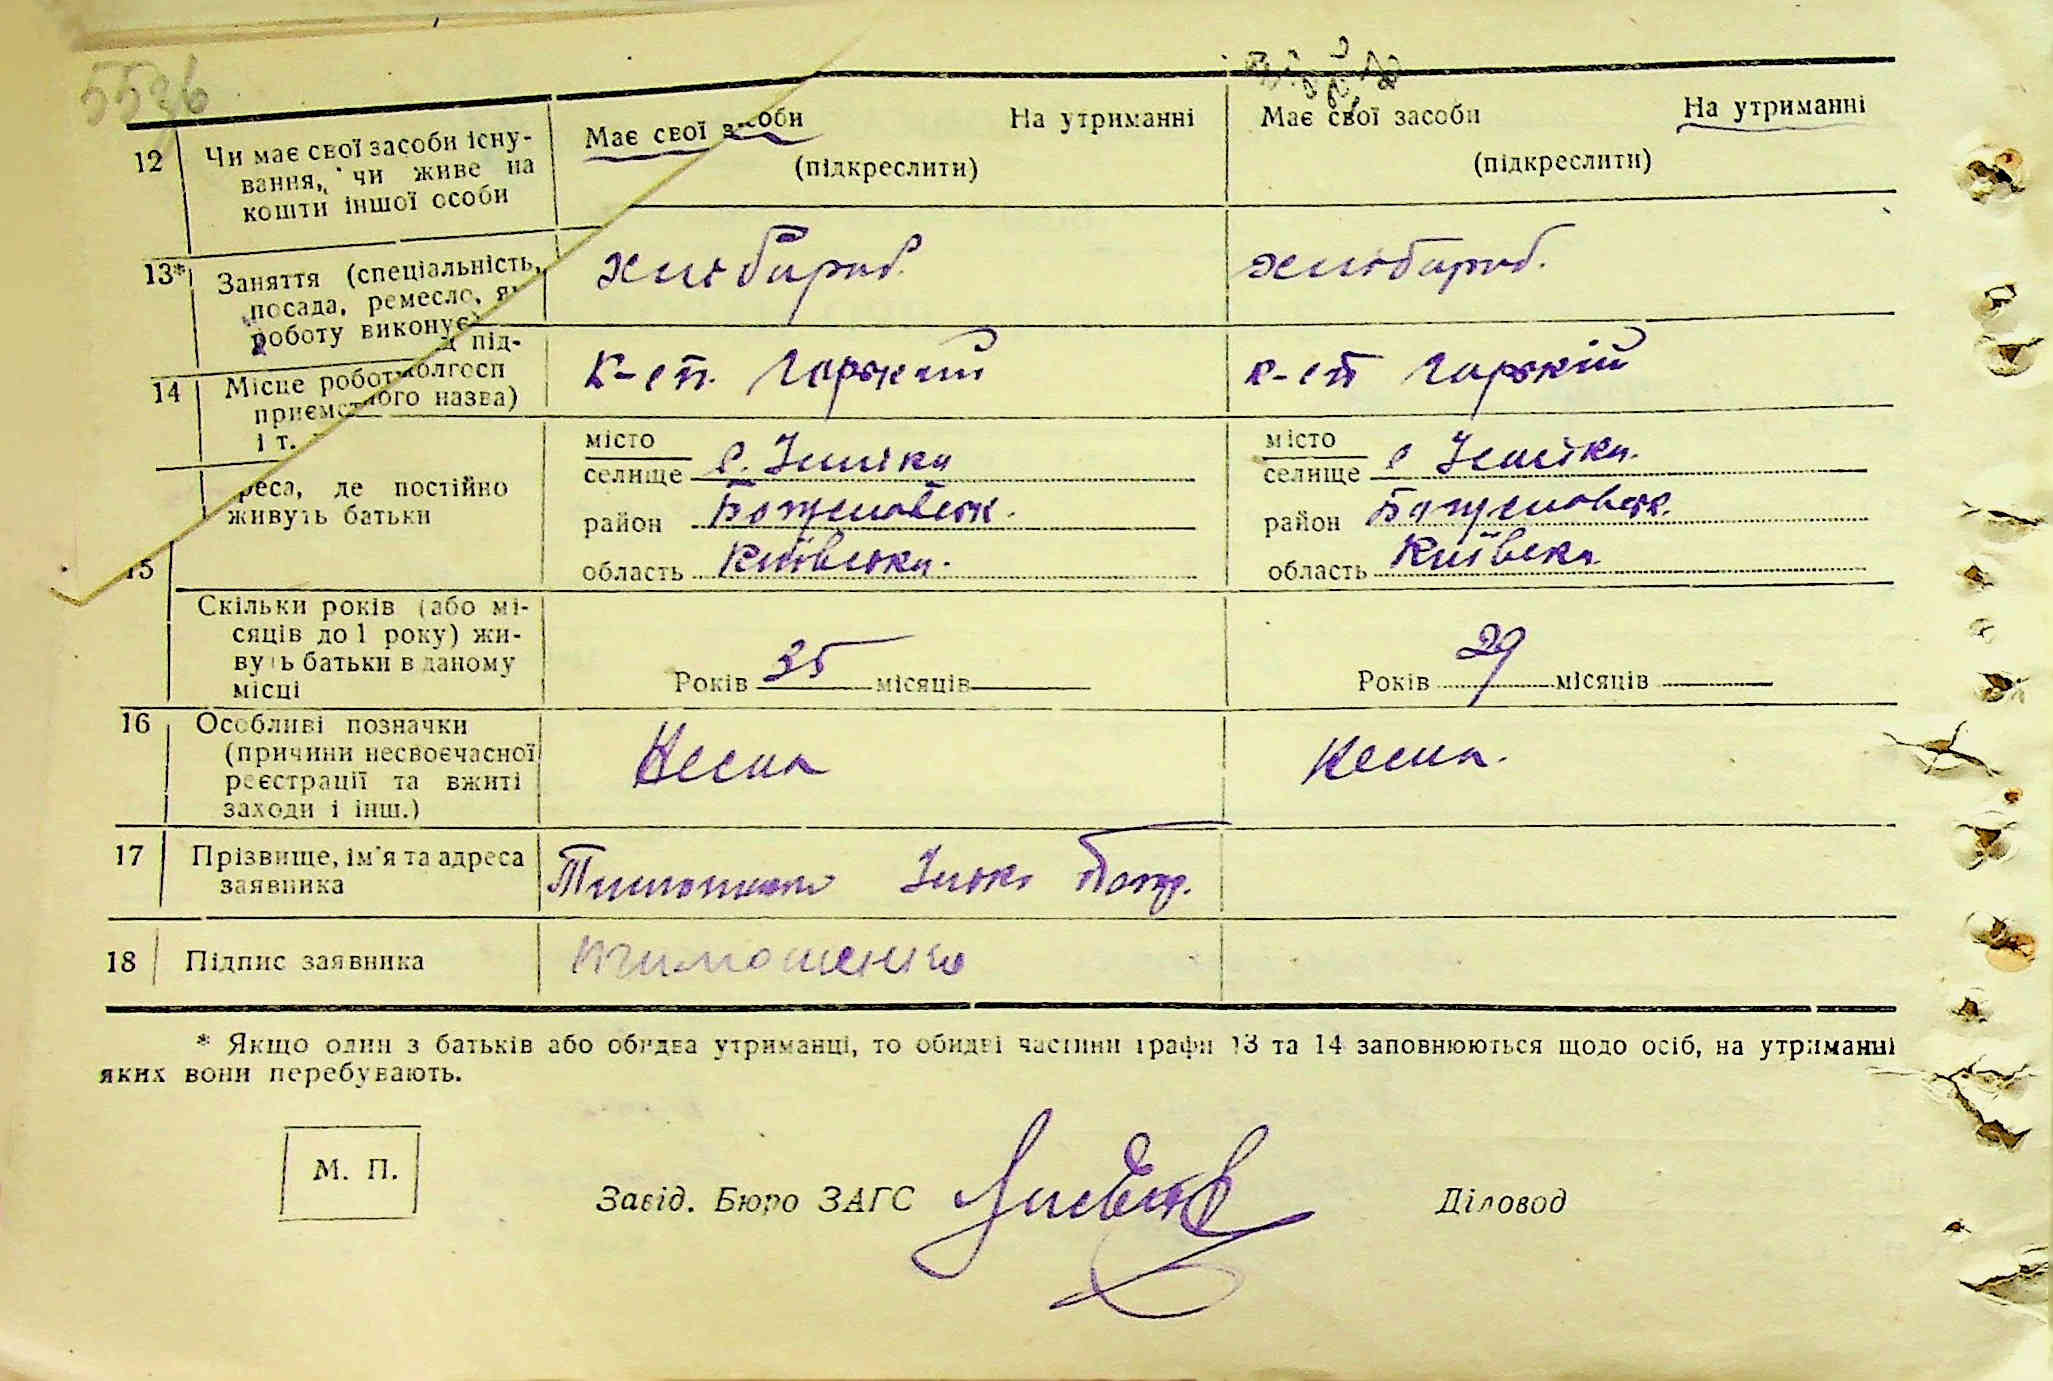 12
Чи має свої засоби існу-
вання, чи живе на
кошти іншої особи
Має свої засоби На утриманні
(підкреслити)
Має свої засоби На утриманні
(підкреслити)
13*
Заняття (спеціальність,
посада, ремесло, яку
роботу виконує)
хлібороб.
хлібороб.
14
Місце роботи
приємст
і т.
під-
колгосп
ного назва)
к-сп. Горький
к-сп Горький
15
реса, де постійно
живуть батьки
місто
селище с.
район
область Київська.
місто
селище с
район
область Київська
Скільки років (або мі-
сяців до 1 року) жи-
вуть батьки в даному
місці
Років 35 місяців
Років 29 місяців
16
Особливі позначки
(причини несвоєчасної
реєстрації та вжиті
заходи і інш.)
Нема
Нема.
17
Прізвище, ім'я та адреса
заявника
Тимошенко
18
Підпис заявника
тимошенко
* Якщо один з батьків або обидва утриманці, то обидві частини графи 13 та 14 заповнюються щодо осіб, на утриманні
яких вони перебувають.
М. П.
Завід. Бюро ЗАГС
Діловод